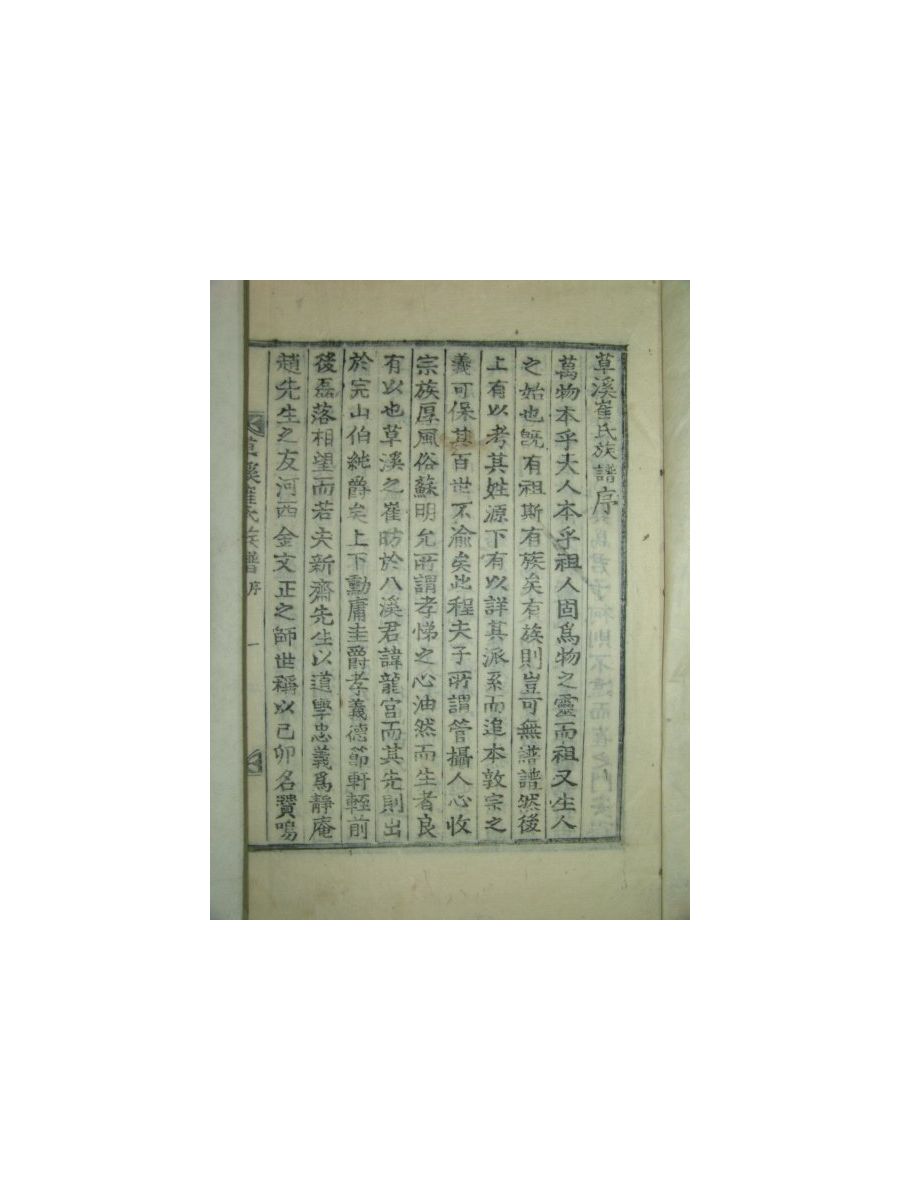 草溪崔氏族譜序
萬物本乎天人本乎祖人固爲物之靈而祖又生人
之始也旣有祖斯有族矣有族則豈可無譜譜然後
上有以考其姓源下有以詳其派系而追本敦宗之
義可保其百世不渝矣此程夫子所謂管攝人心收
宗族厚風俗蘇明允所謂孝悌之心油然而生者良
有以也草溪之崔昉於八溪君諱龍宮而其先則出
於完山伯純爵矣上下勳庸圭爵孝義德節軒輊前
後磊落相望而若夫新齋先生以道學忠義爲靜庵
趙先生之友河西金文正之師世稱以己卯名賢嗚
草溪崔氏族譜 序 一